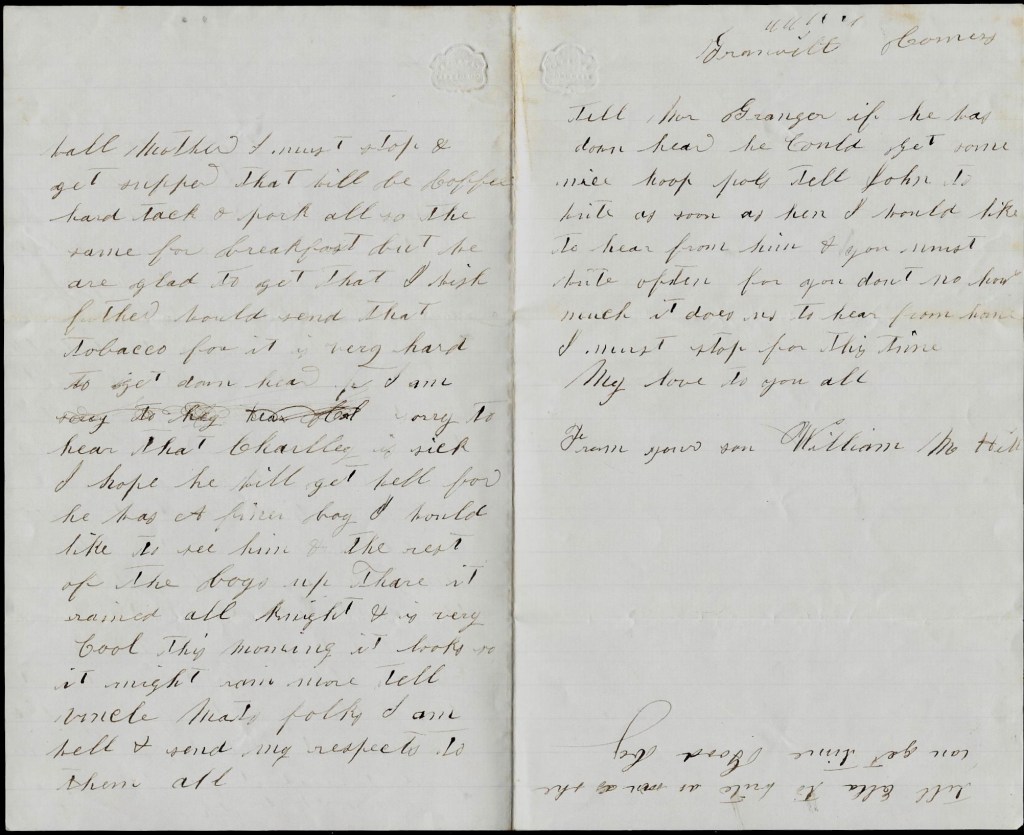 ball Mother I must stop &
get supper that bill be Coffee
hard tack & pork all so the
same for breakfast but be
are glad to get that I bish
father bould send that
tobacco for it is very hard
to get down hear I am
sorry to
hear that Charlley is sick
I hope he bill get bell for
he bas A finer boy I bould
like to see him & the rest
of the boys up Thare it
rained all Knight & is very
Cool this morning it looks so
it might rain more tell
uncle Mats folks I am
bell & send my respects to
them all
Granvill Homers
tell Mr Granger if he bas
down hear he Could get some
nice hoop pols tell John to
brite as soon as hen I bould like
to hear from him & you must
brite often for you dont no how
much it does us to hear from home
I must stop for this time
My love to you all
From your son William M Hill
tell Ella to brite as soon as she
can get time Good by